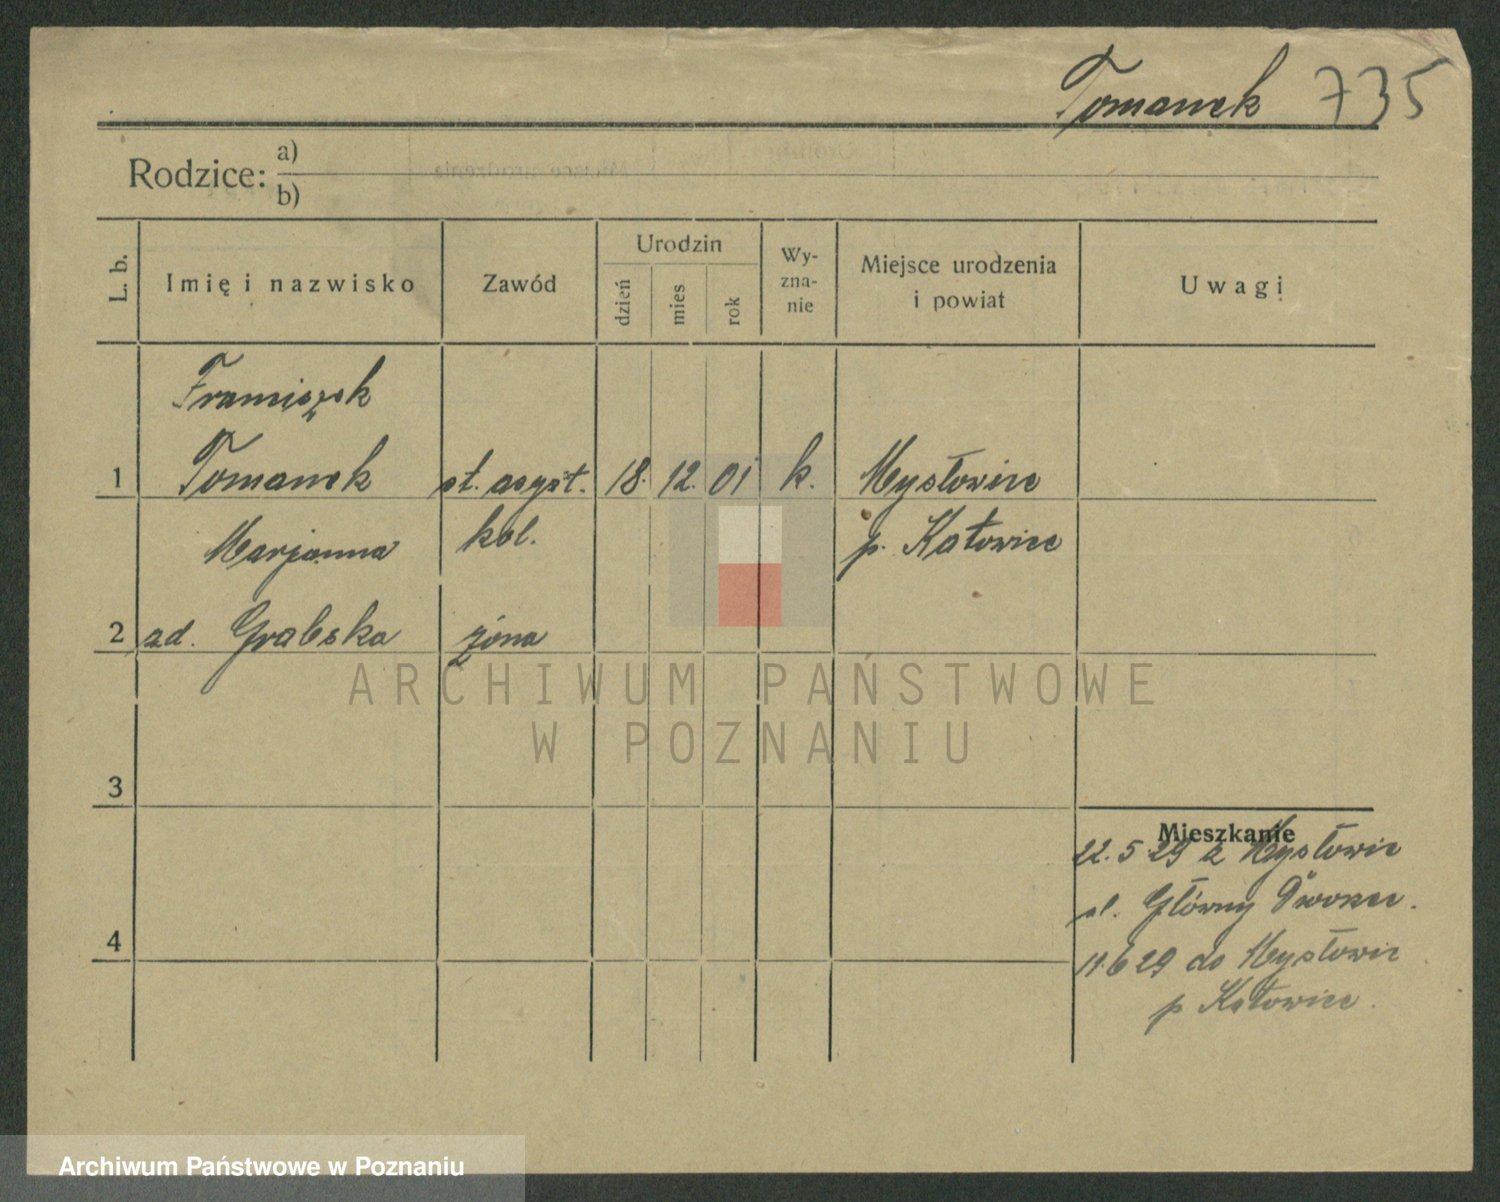 Tomanek 735
Rodzice: a)
b)
L. b. Imię i nazwisko Zawód Urodzin dzień mies rok Wy-zna-nie Miejsce urodzenia i powiat Uwagi
Franciszek
1 Tomanek st. asyst. 18. 12. 01 k. Mysłowice
kol. p. Katowice
Marjanna
2 zd. Grabska żona
ARCHIWUM PAŃSTWOWE
W POZNANIU
3
Mieszkanie
22.5 29 z Mysłowic
ul. Główny Dworzec.
4
11.6 29 do Mysłowic
p Katowice.
Archiwum Państwowe w Poznaniu